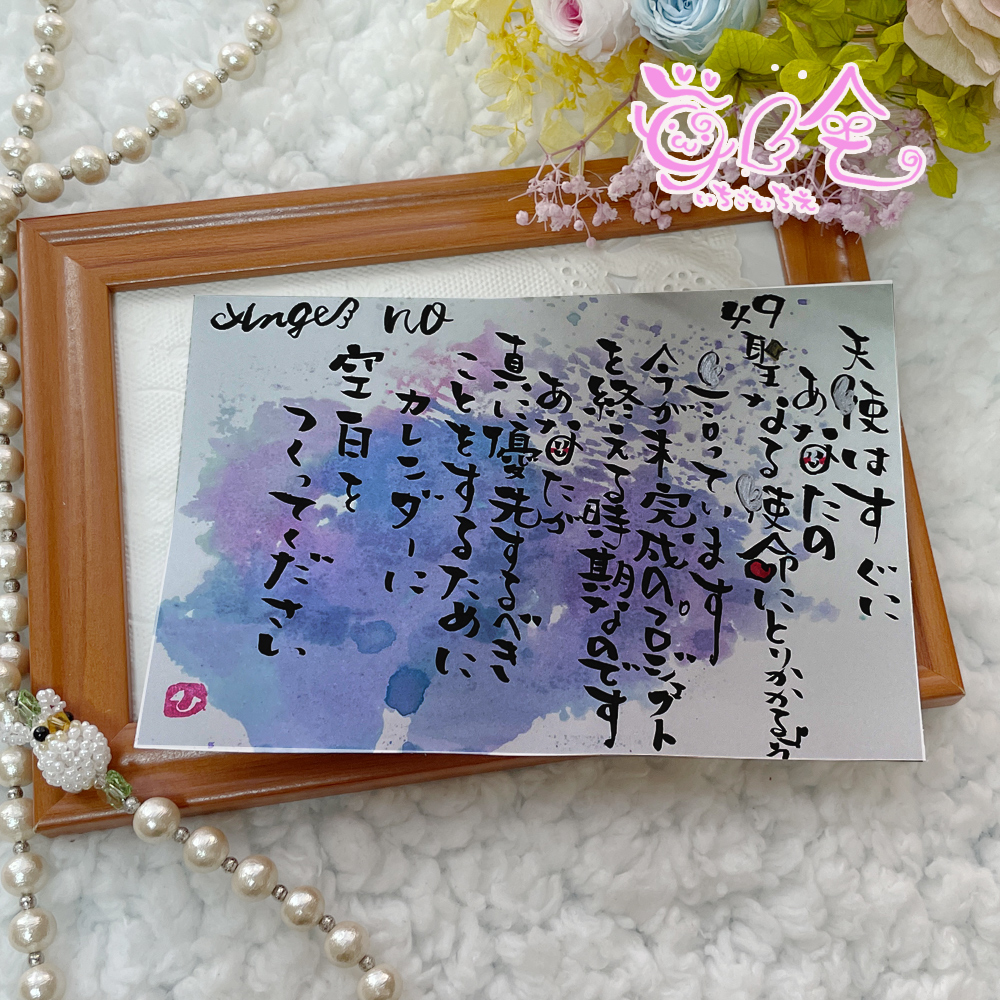 Angel no
49
天使はすぐに
あなたの
聖なる使命にとりかかるよう
言っています。
今が未完成のプロジェクト
を終える時期なのです
あなたが
真に優先するべき
ことをするために
カレンダーに
空白を
つくってください
いちごいちえ